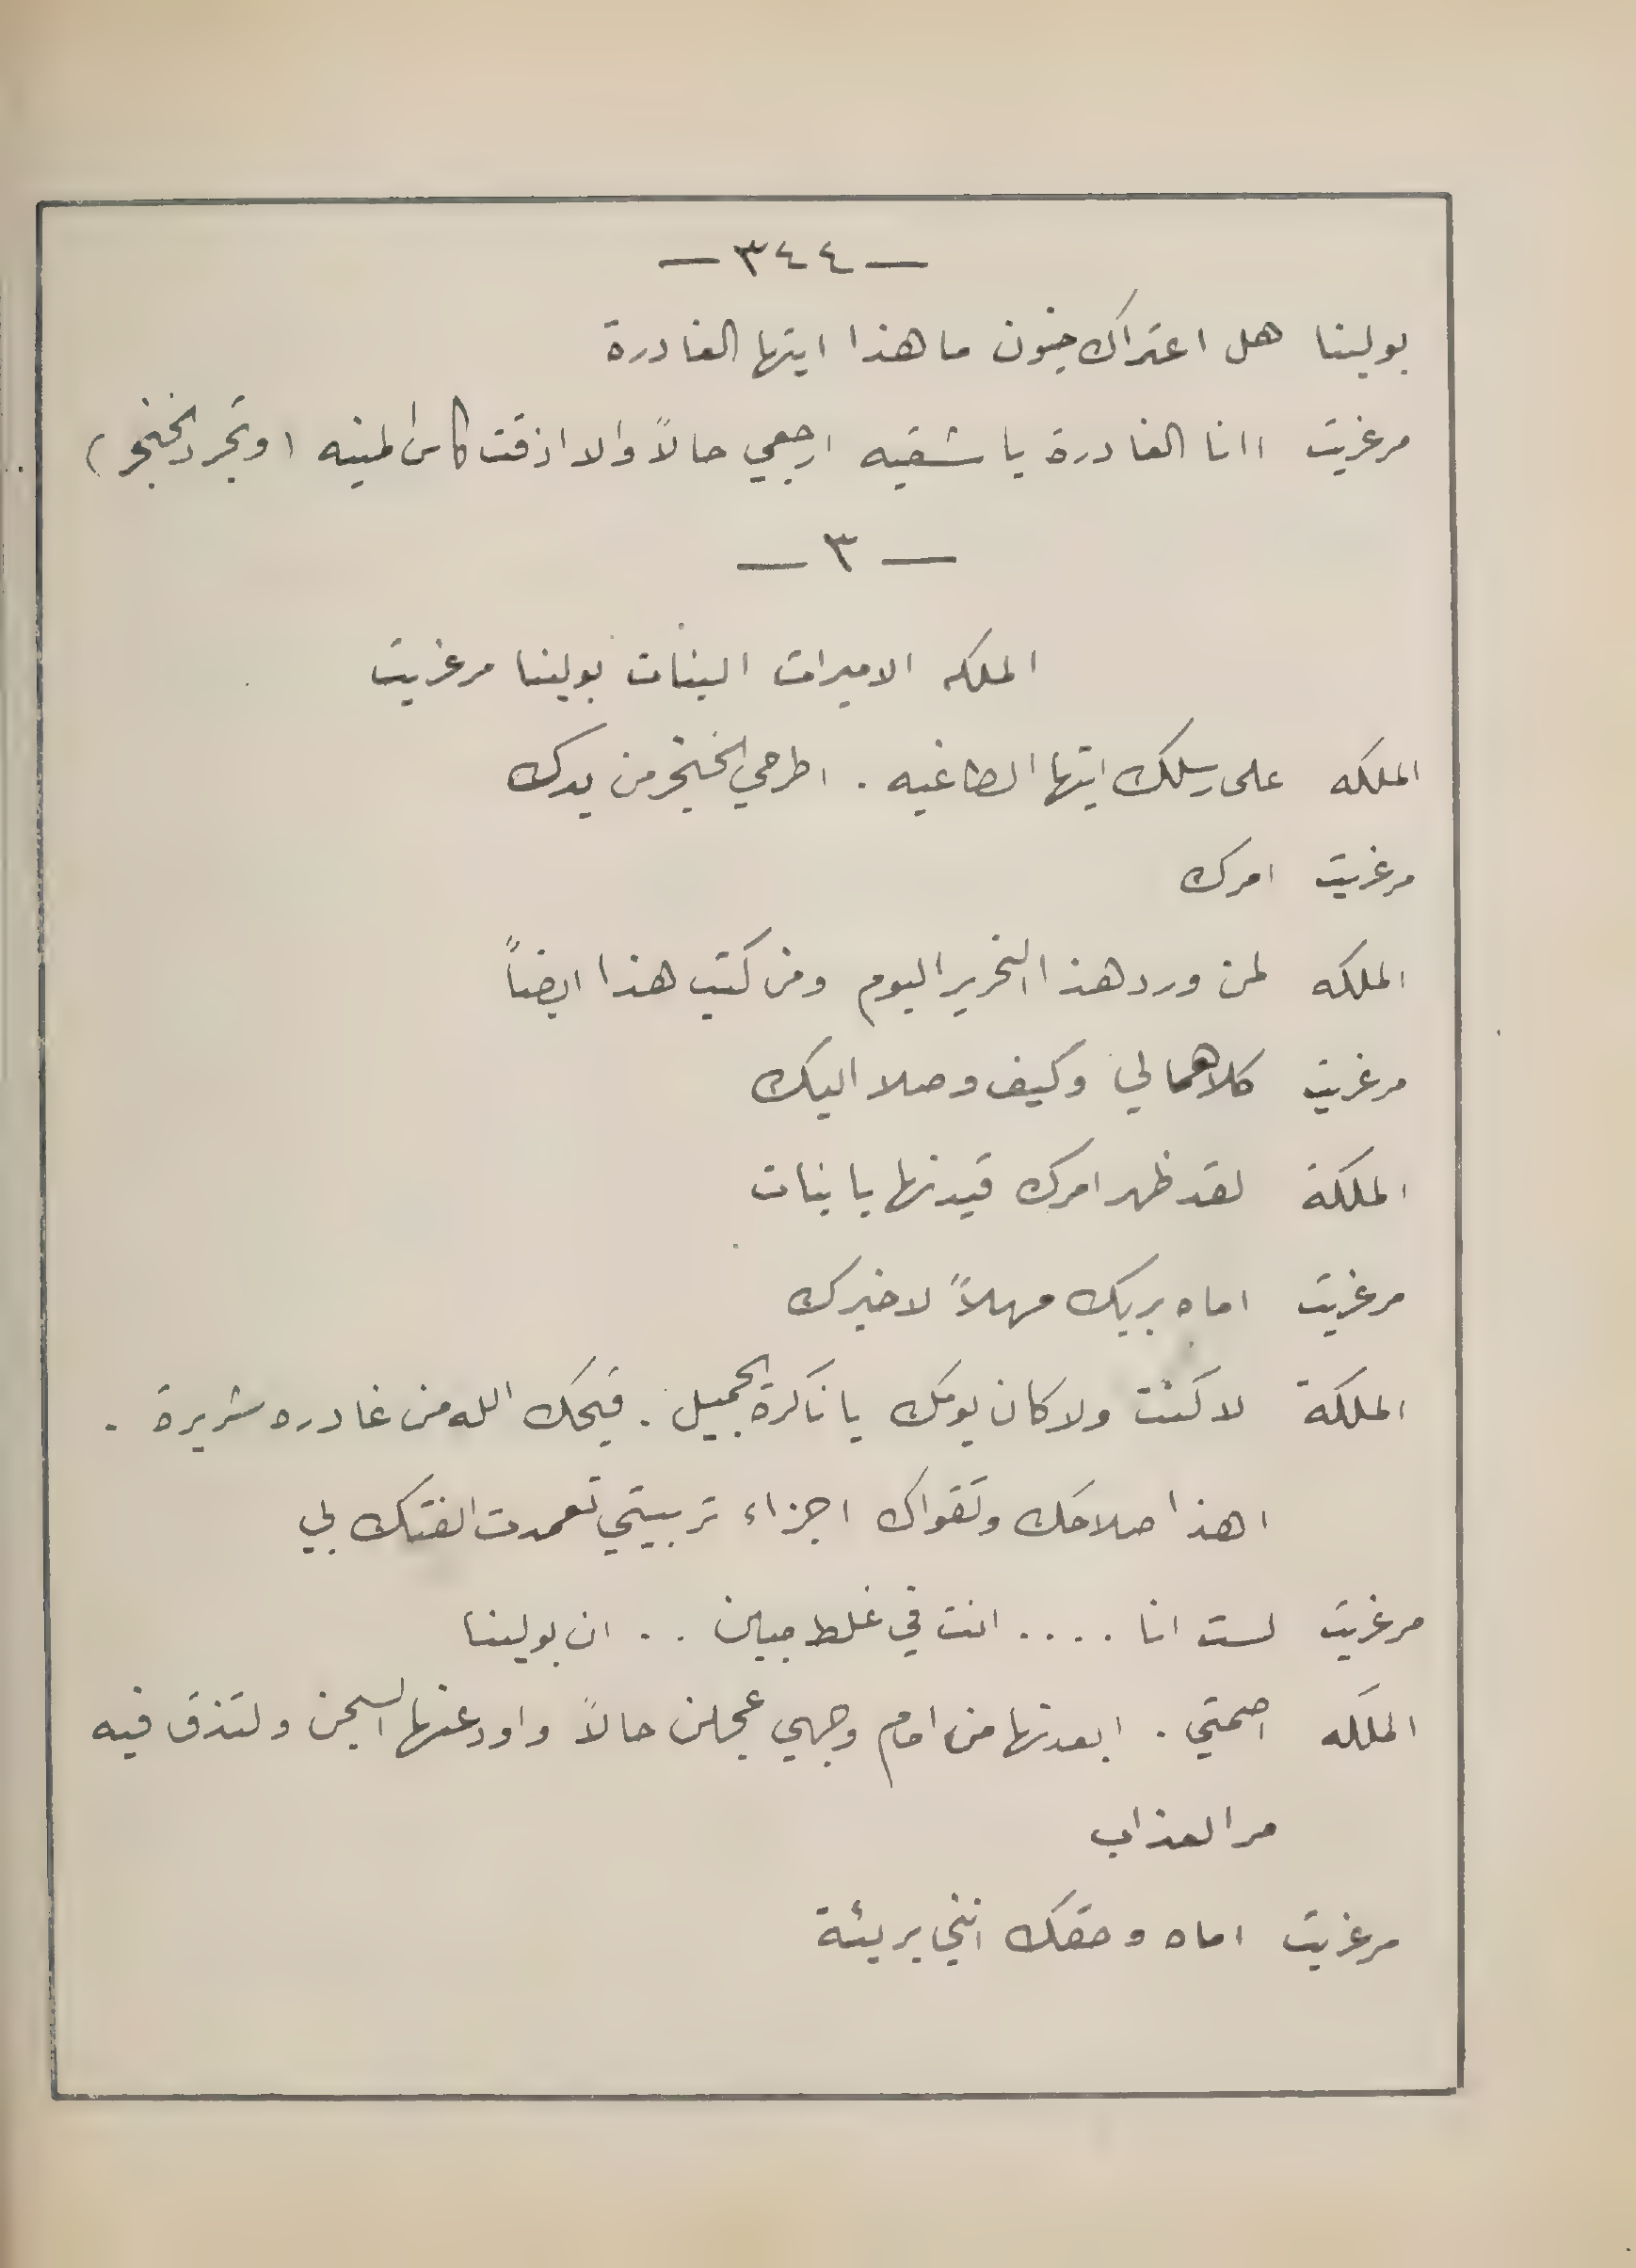 — ٣٤٤ —
بولينا هل اعتراك جنون ما هذا ايتها الغادرة
مرغريت اانا الغادرة يا شقيه ارجعي حالاً والا اذقت كاس المنيه (وتجرد الخنجر)
— ٣ —
الملكه الاميرات البنات بولينا مرغريت
الملكه على رسلك ايتها الطاغيه . اطرحي الخنجر من يدك
مرغريت امرك
الملكه لمن ورد هذا التحرير اليوم ومن كتب هذا ايضاً
مرغريت كلاهما لي وكيف وصلا اليك
الملكة لقد ظهر امرك قيدنها يا بنات
مرغريت اماه بربك مهلاً لاخبرك
الملكة لا كنت ولا كان يومك يا ناكرة الجميل . قبحك الله من غادره شريرة .
اهذا صلاحك وتقواك اجزاء تربيتي تعمدت الفتك بي
مرغريت لست انا .... انت في غلط مبين .. ان بولينا
الملكه اصمتي . ابعدنها من امام وجهي عجلن حالاً واودعنها السجن ولتذق فيه
مر العذاب
مرغريت اماه وحقك انني بريئة